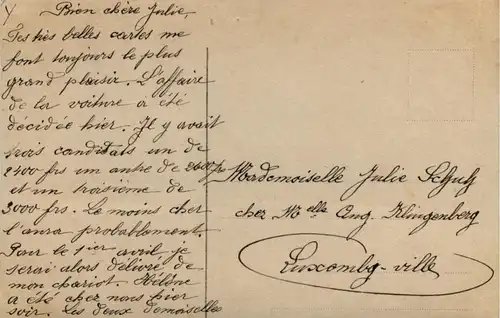 Bien chère Julie,
Tes très belles cartes me
font toujours le plus
grand plaisir. L'affaire
de la voiture a été
décidée hier. Il y avait
trois candidats un de
2400 frs un autre de 2600 frs
et un troisième de
3000 frs. Le moins cher
l'aura probablement.
Pour le 1ier avril je
serai alors délivré de
mon chariot. Hélène
a été chez nous hier
soir. Les deux demoiselles
Mademoiselle Julie
chez Melle Eug. Klingenberg
Luxembg-ville